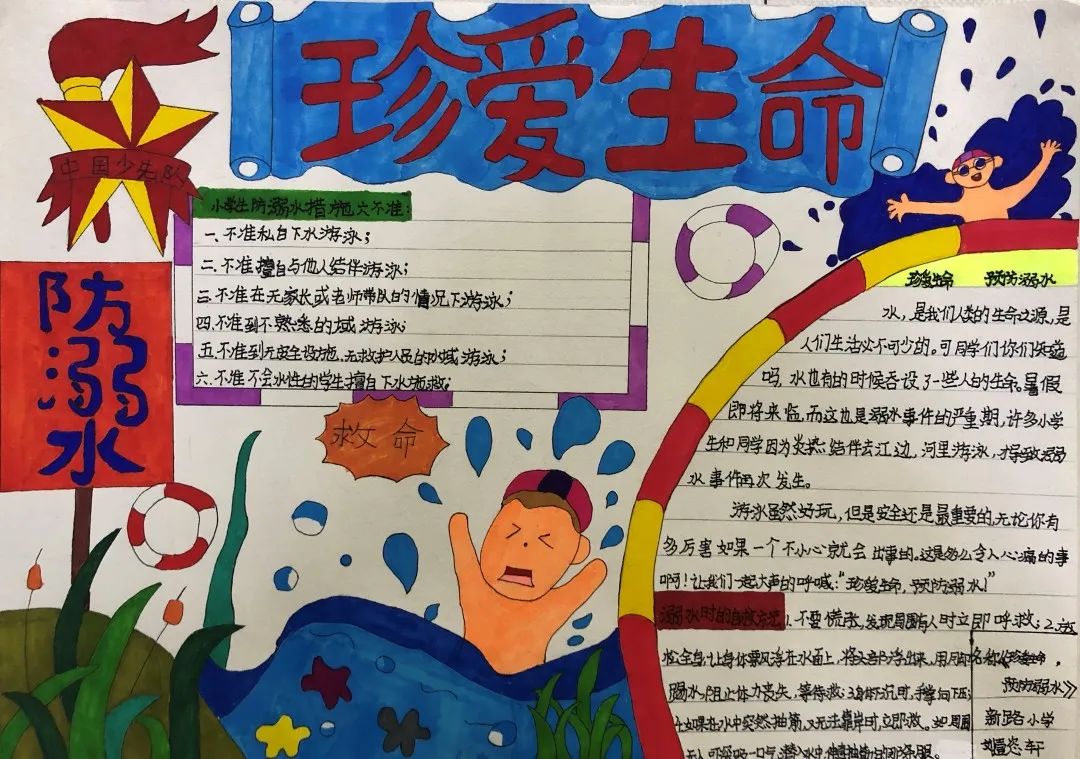 珍爱生命
中国少先队
防溺水
小学生防溺水措施六不准:
一、不准私自下水游泳；
二.不准擅自与他人结伴游泳；
三.不准在无家长或老师带队的情况下游泳；
四.不准到不熟悉的水域游泳
五.不准到无安全设施、无救护人员的水域游泳；
六.不准不会水性的学生擅自下水施救;
救命
珍爱生命 预防溺水
水，是我们人类的生命之源，是
人们生活必不可少的。可同学们你们知道
吗，水也有的时候吞没了一些人的生命。暑假
即将来临，而这也是溺水事件的严重期，许多小学
生和同学因为炎热结伴去江边，河里游泳，才导致溺
水事件再次发生。
游泳虽然好玩，但是安全还是最重要的，无论你有
多厉害如果一个不小心就会出事的。这是多么令人心痛的事
啊！让我们一起大声的呼喊:“珍爱生命，预防溺水！”
溺水时的自救方法 1.不要慌张，发现周围有人时立即呼救；2.放
松全身，让身体飘浮在水面上，将头部浮出水，用脚
踢水，阻止体力丧失，等待救；3.身体下沉时，手掌向下压；
如果在水中突然抽筋，又无法靠岸时，立即救。如周围
无人可深吸一口气潜入水中
名称《珍爱生命，
预防溺水》
新路小学
轩